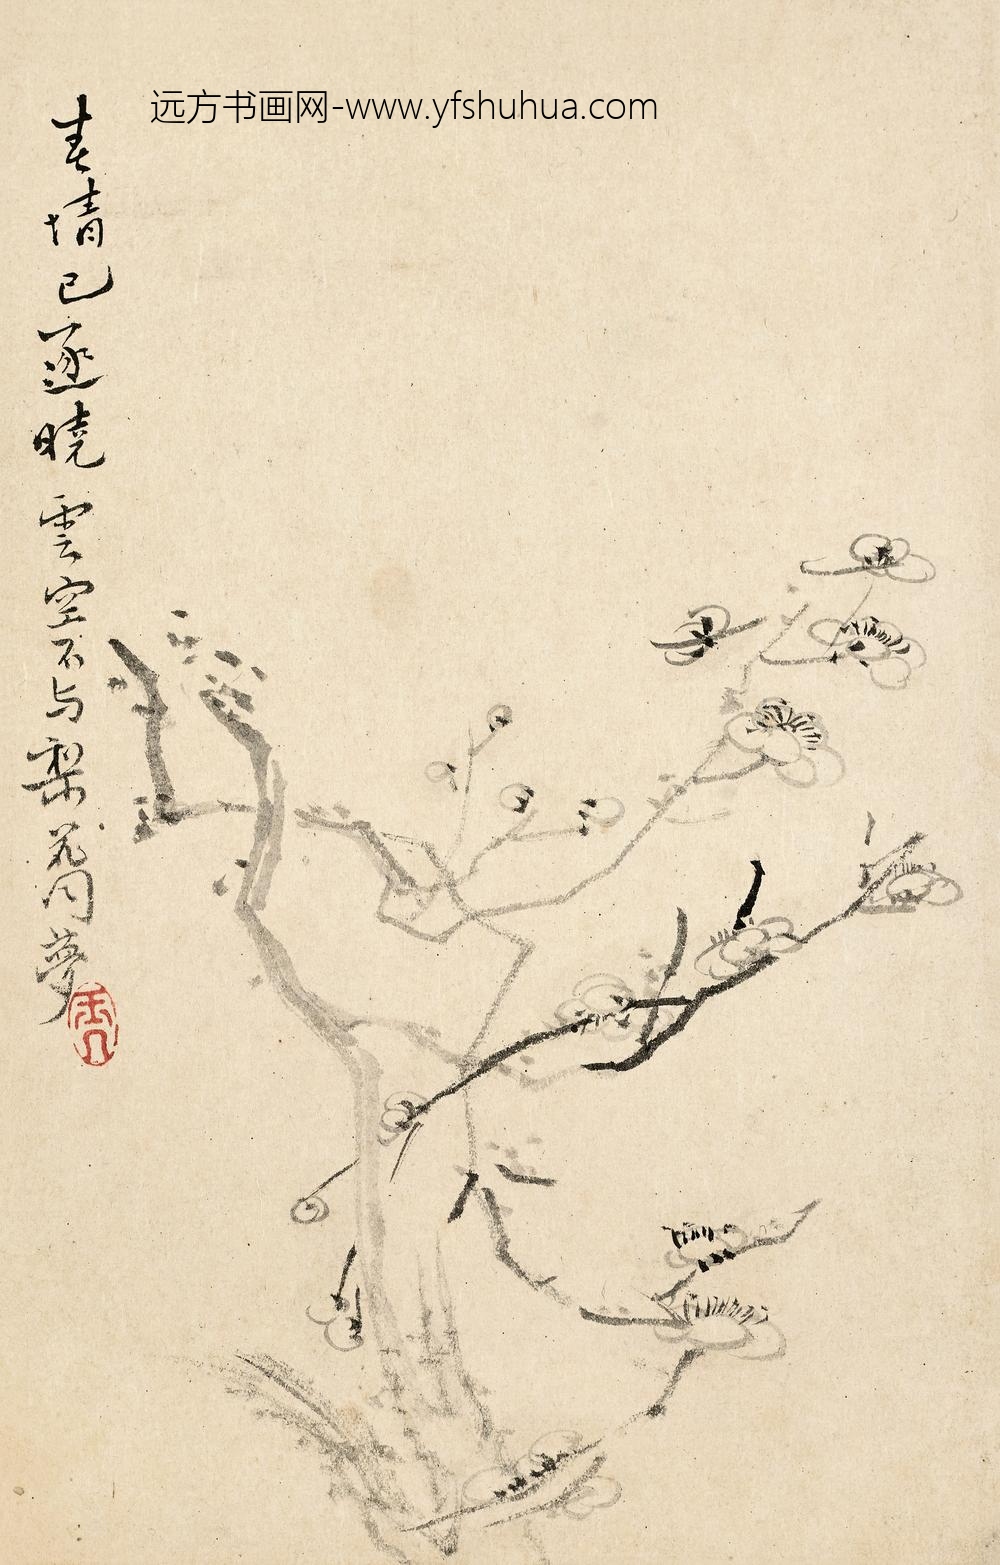 远方书画网-www.yfshuhua.com
春情已逐曉雲空不与梨花同夢